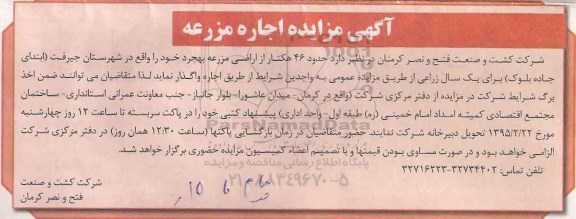 آگهی مزایده اجاره مزرعه
شرکت کشت و صنعت فتح و نصر کرمان در نظر دارد حدود ۴۶ هکتار از اراضی مزرعه بهجرد خود را واقع در شهرستان جیرفت (ابتدای
جاده بلوک) برای یک سال زراعی از طریق مزایده عمومی به واجدین شرایط از طریق اجاره واگذار نماید لذا متقاضیان می توانند ضمن اخذ
برگ شرایط شرکت در مزایده از دفتر مرکزی شرکت (واقع در کرمان- میدان عاشورا- بلوار جانباز- جنب معاونت عمرانی استانداری- ساختمان
مجتمع اقتصادی کمیته امداد امام خمینی (ره) طبقه اول- واحد اداری) پیشنهاد کتبی خود را در پاکت سربسته تا ساعت ۱۲ روز چهارشنبه
مورخ ۱۳۹۵/۲/۲۲ تحویل دبیرخانه شرکت نمایند. حضور متقاضیان در زمان بازگشائی پاکتها (ساعت ۱۲:۳۰ همان روز) در دفتر مرکزی شرکت
الزامی خواهد بود و در صورت مساوی بودن قیمتها و با تصمیم اعضاء کمیسیون مزایده حضوری برگزار خواهد شد.
تلفن تماس: ۳۲۷۳۴۴۰۲-۳۲۷۱۶۲۲۳
شرکت کشت و صنعت
فتح و نصر کرمان
ParsNamadData
پایگاه اطلاع رسانی مناقصه و مزایده
۰۲۱-۸۸۳۴۹۶۷۰-۵